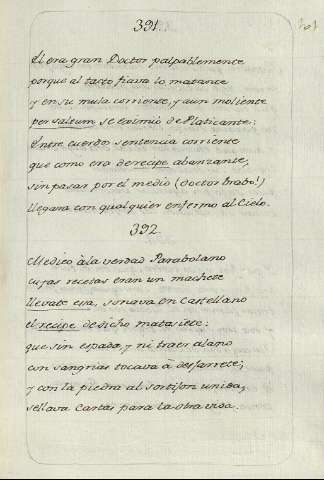 391.
El era gran Doctor palpablemente
porque al tacto fiava lo matante
y en su mula corriente, y aun moliente
per saltum se eximió de Platicante:
Entre cuerdos sentencia corriente
que como era de recipe abanzante,
sin pasar por el medio (doctor brabo!)
llegara con qualquier enfermo al Cielo.
392.
Medico à la verdad Parabolano
cuyas recetas eran un machete
llevate esa, sonava en Castellano
el recipe de dicho matasiete:
que sin espada, y ni traer alano
con sangrias tocava à desjarrete;
y con la piedra al sortijon unida,
sellava Cartas para la otra vida.